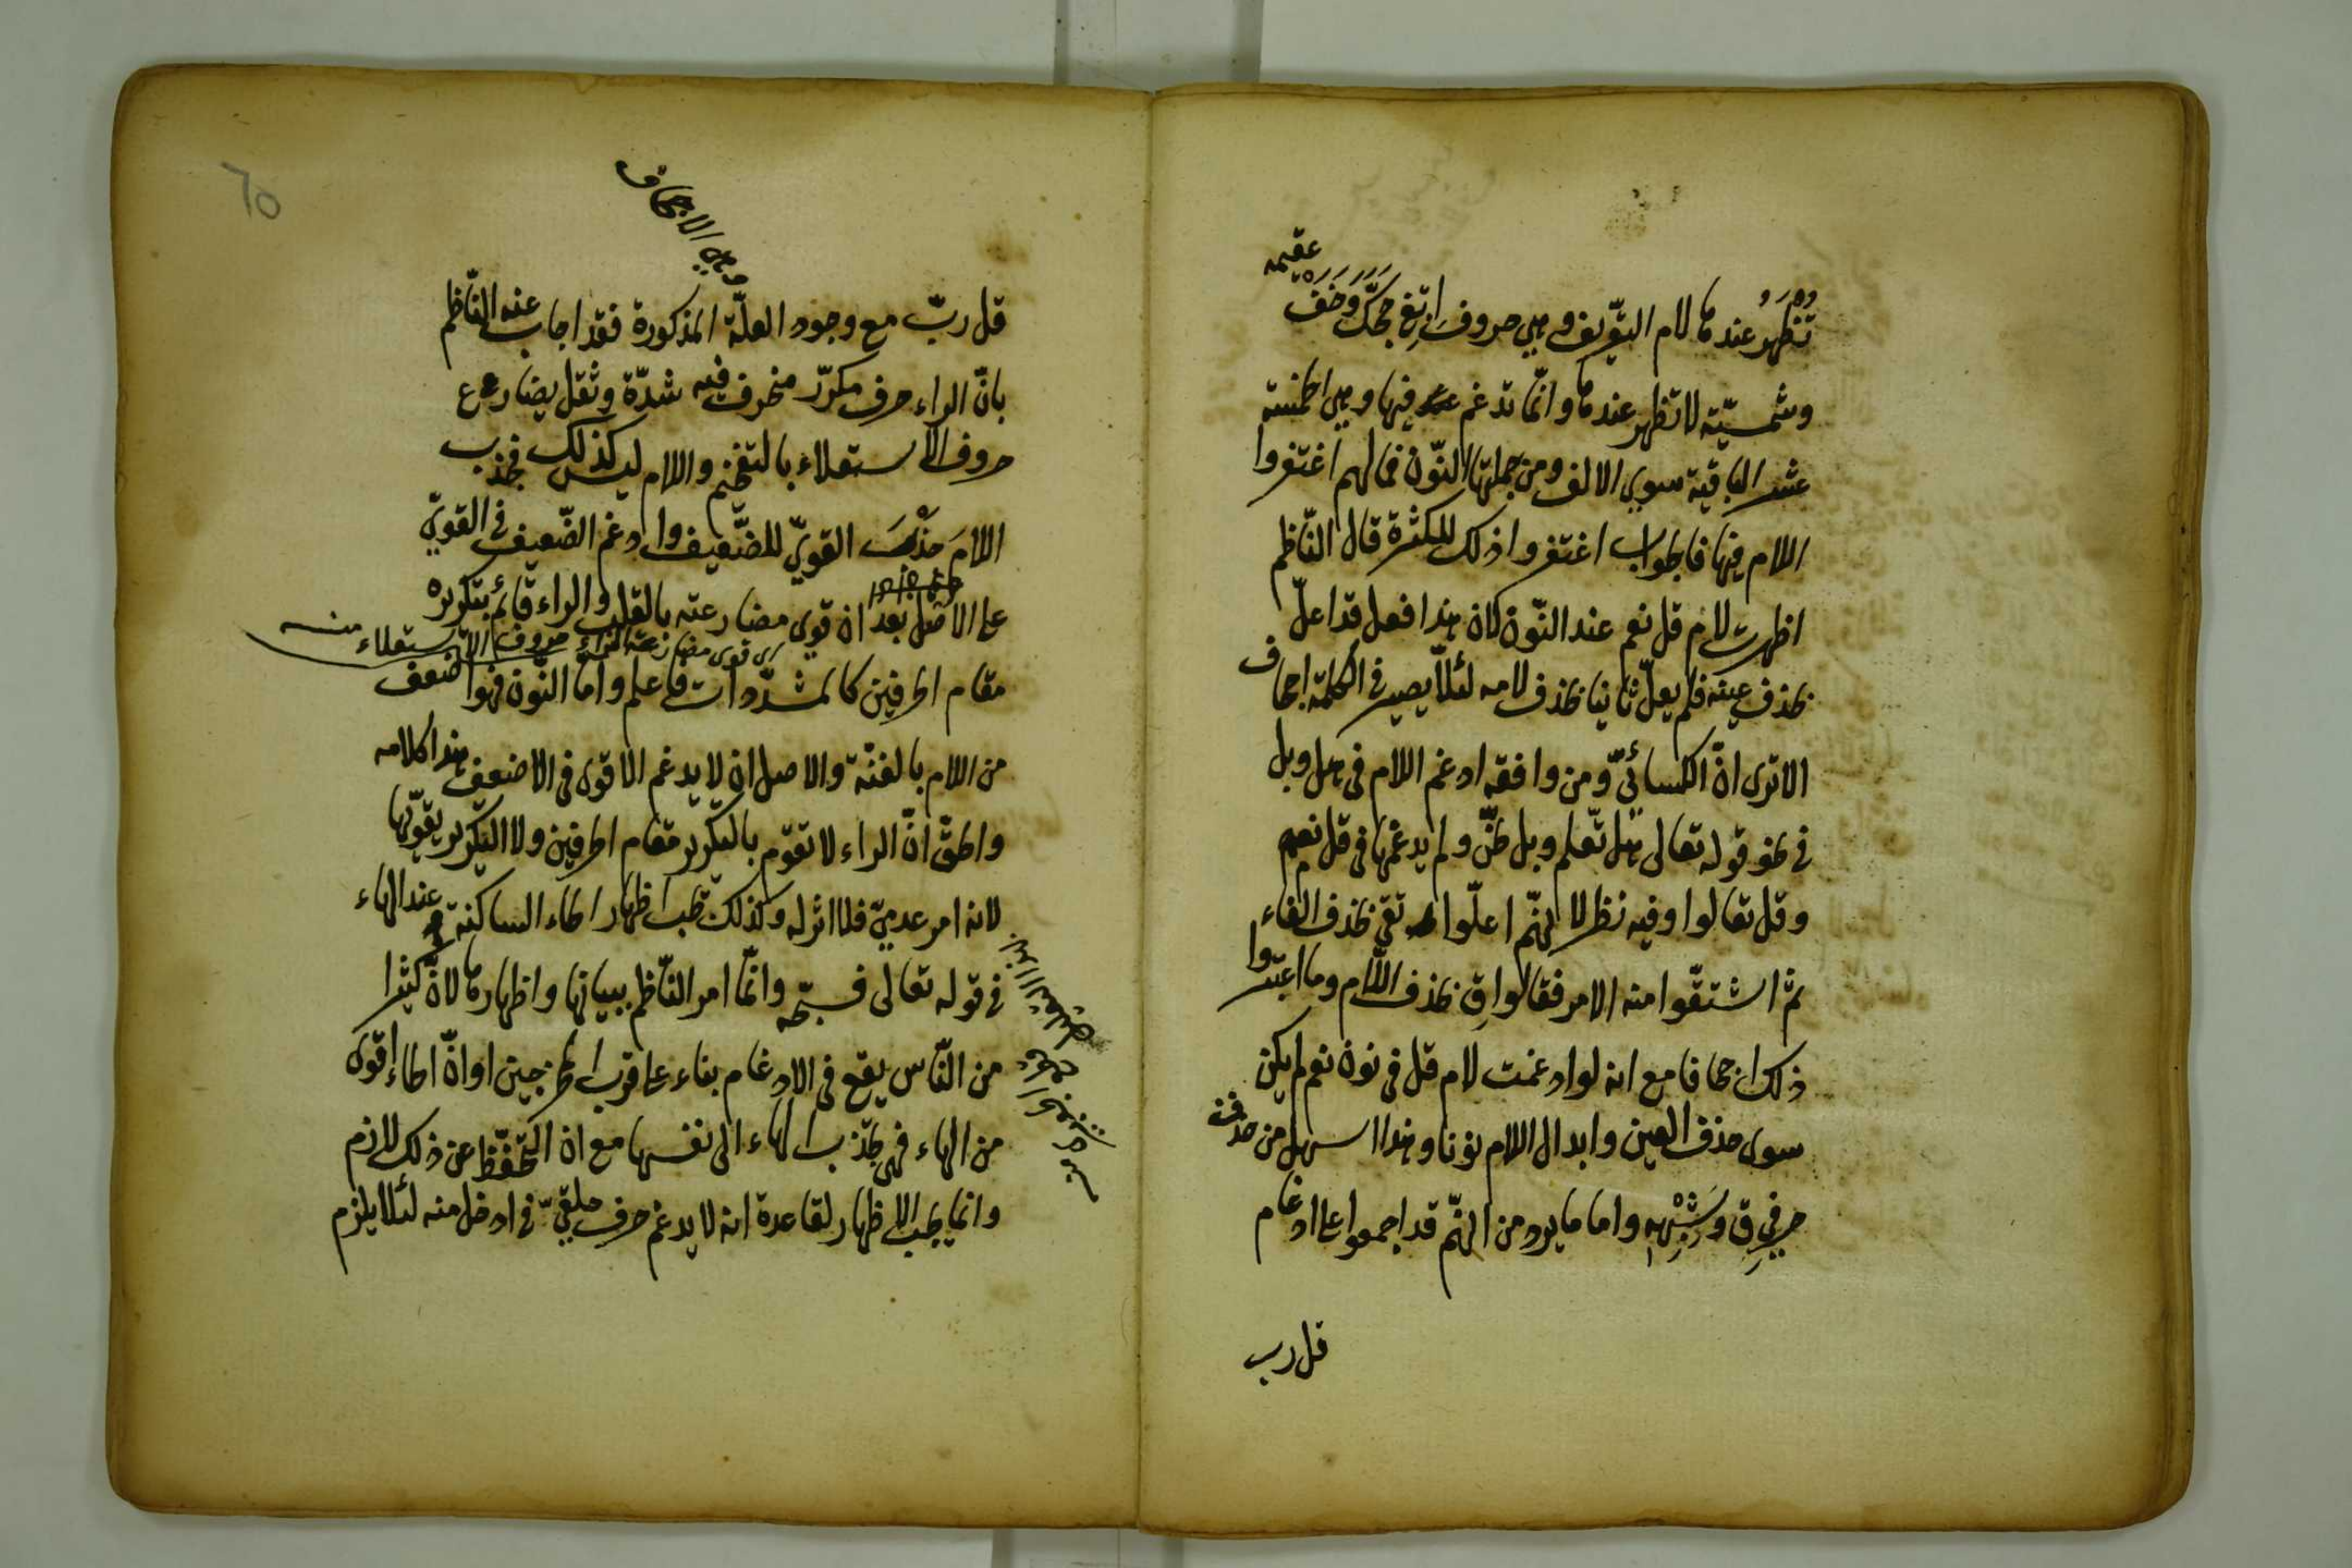 تُظْهَرُ عندها لام التّعريف وهي حروف اِبْغِ حَجَّكَ وَخَفْ
عَقِيمَه
وشمسيّة لا تظهر عندها وانّما تدغم فيها وهي الخمسة
عشر الباقية سوى الالف ومن جملتها النّون فما لهم اغتفروا
اللام فيها فالجواب اغتفروا ذلك للكثرة قال النّاظم
اظهرت لام قل نعم عند النّون لان هذا فعل قد اعلّ
بحذف عينه فلم يعلّ ثانيا بحذف لامه لئلّا يصير في الكلمة اجحاف
الا ترى انّ الكسائيّ ومن وافقه ادغم اللام في هل وبل
في نحو قوله تعالى هل تّعلم وبل ظنّ ولم يدغمها في قل نعم
وقل تعالوا وفيه نظر لانهّم اعلّوا تقي بحذف الفاء
ثمّ اشتقّوا منه الامر فقالوا قِ بحذف اللّام وما اعتبروا
ذلك اجحافا مع انه لو ادغمت لام قل في نون نعم لم يكن
سوى حذف العين وابدال اللام نونا وهذا اسهل من حذف
حرفي قِ وَشِبْهِهِ واما ما يرد من انهّم قد اجمعوا على ادغام
قل رب
65
وهي الاجحاف
قل ربّ مع وجود العلّة المذكورة فقد اجاب عنه النّاظم
بانّ الراء حرف مكرّر منحرف فيه شدّة وثقل يضارع
حروف الاستعلاء بالتفخيم واللام ليس كذلك فجذب
اللامَ جَذْبَ القويّ للضّعيف وادغم الضّعيف في القويّ
على الاصل بعد ان قوي مضارعته بالقلب والراء قائم بتكريره
اى قوى مضارعة الراء حروف الاستعلاء منه
مقام الحرفين كالمشدّدات فاعلم واما النّون فهو اضعف
من اللام بالغنّة والاصل ان لا يدغم الاقوى في الاضعف هذا كلامه
والحقّ انّ الراء لا تقوم بالتكرير مقام الحرفين ولا التكرير يقوّيها
لانه امر عدميّ فلا اثر له وكذلك يجب اظهار الحاء الساكنة عند الهاء
في قوله تعالى فسبّحه وانّما امر النّاظم ببيانها واظهارها لانّ كثيرا
من النّاس يقع في الادغام بناء على قرب المخرجين او انّ الحاء اقوى
من الهاء فهي تجذب الهاء الى نفسها مع ان التّحفّظ عن ذلك لازم
وانما يجب الاظهار لقاعدة انه لا يدغم حرف حلقيّ في ادخل منه لئلا يلزم